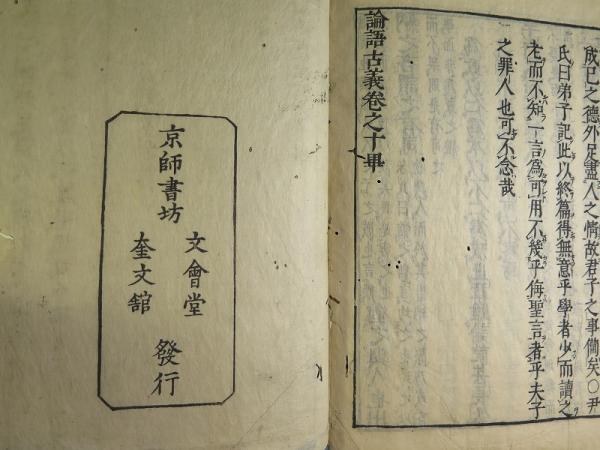 成已之德外足盡人之情故君子之事備矣○尹
氏曰弟子記此以終篇得無意乎學者少而讀之
老而不知一言爲可用不幾乎侮聖言者乎夫子
之罪人也可不念哉
論語古義卷之十畢
京師書坊
文會堂
奎文舘
發行